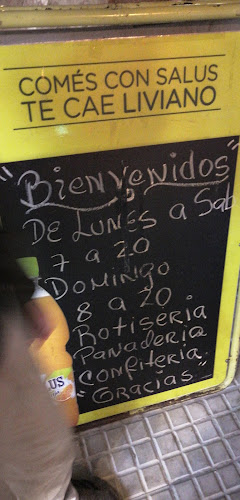 COMÉS CON SALUS
TE CAE LIVIANO
"Bienvenidos"
DE LUNES a Sab
7 a 20
DOMINGO
8 a 20
Rotiseria
Panaderia
Confiteria
"Gracias"